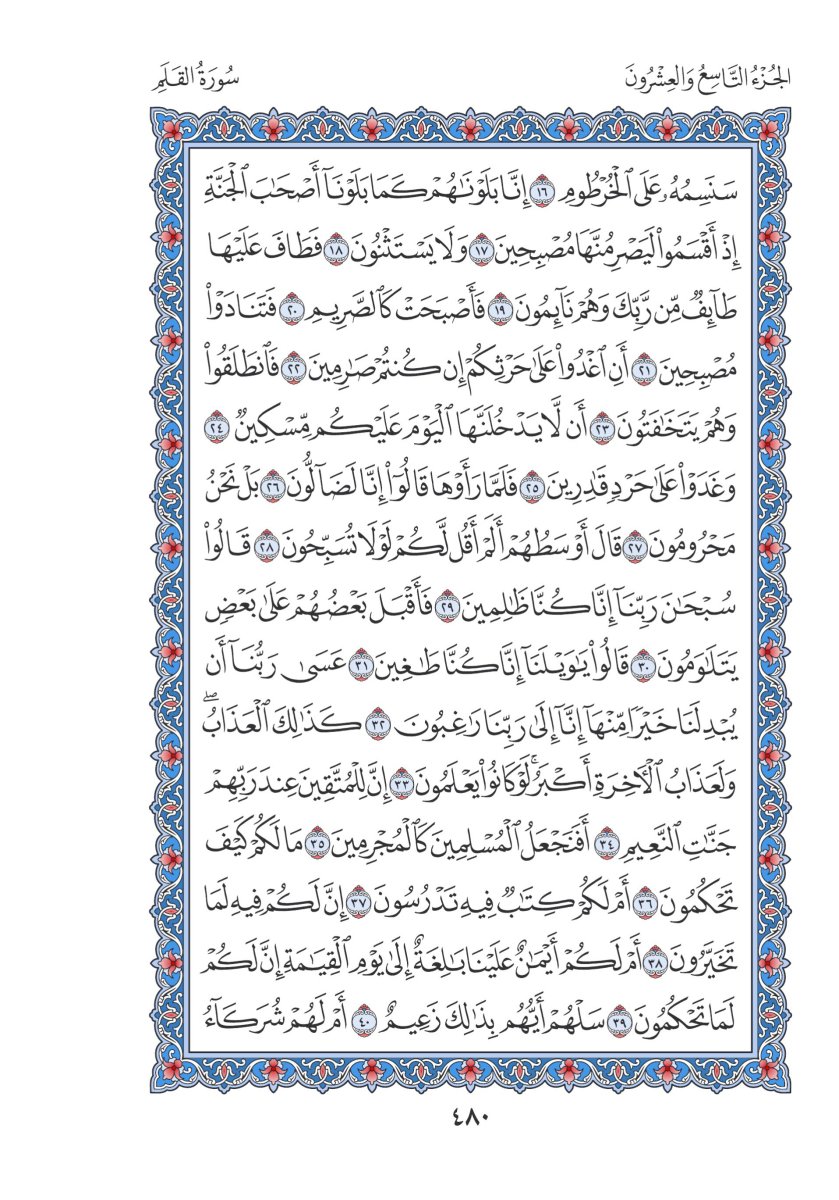 الجُزْءُ التَّاسِعُ وَالعِشْرُونَ
سُورَةُ القَلَمِ
سَنَسِمُهُۥ عَلَى ٱلْخُرْطُومِ ١٦ إِنَّا بَلَوْنَٰهُمْ كَمَا بَلَوْنَآ أَصْحَٰبَ ٱلْجَنَّةِ
إِذْ أَقْسَمُوا۟ لَيَصْرِمُنَّهَا مُصْبِحِينَ ١٧ وَلَا يَسْتَثْنُونَ ١٨ فَطَافَ عَلَيْهَا
طَآئِفٌ مِّن رَّبِّكَ وَهُمْ نَآئِمُونَ ١٩ فَأَصْبَحَتْ كَٱلصَّرِيمِ ٢٠ فَتَنَادَوْا۟
مُصْبِحِينَ ٢١ أَنِ ٱغْدُوا۟ عَلَىٰ حَرْثِكُمْ إِن كُنتُمْ صَٰرِمِينَ ٢٢ فَٱنطَلَقُوا۟
وَهُمْ يَتَخَٰفَتُونَ ٢٣ أَن لَّا يَدْخُلَنَّهَا ٱلْيَوْمَ عَلَيْكُم مِّسْكِينٌ ٢٤
وَغَدَوْا۟ عَلَىٰ حَرْدٍ قَٰدِرِينَ ٢٥ فَلَمَّا رَأَوْهَا قَالُوٓا۟ إِنَّا لَضَآلُّونَ ٢٦ بَلْ نَحْنُ
مَحْرُومُونَ ٢٧ قَالَ أَوْسَطُهُمْ أَلَمْ أَقُل لَّكُمْ لَوْلَا تُسَبِّحُونَ ٢٨ قَالُوا۟
سُبْحَٰنَ رَبِّنَآ إِنَّا كُنَّا ظَٰلِمِينَ ٢٩ فَأَقْبَلَ بَعْضُهُمْ عَلَىٰ بَعْضٍ
يَتَلَٰوَمُونَ ٣٠ قَالُوا۟ يَٰوَيْلَنَآ إِنَّا كُنَّا طَٰغِينَ ٣١ عَسَىٰ رَبُّنَآ أَن
يُبْدِلَنَا خَيْرًا مِّنْهَآ إِنَّآ إِلَىٰ رَبِّنَا رَٰغِبُونَ ٣٢ كَذَٰلِكَ ٱلْعَذَابُ ۖ
وَلَعَذَابُ ٱلْءَاخِرَةِ أَكْبَرُ ۚ لَوْ كَانُوا۟ يَعْلَمُونَ ٣٣ إِنَّ لِلْمُتَّقِينَ عِندَ رَبِّهِمْ
جَنَّٰتِ ٱلنَّعِيمِ ٣٤ أَفَنَجْعَلُ ٱلْمُسْلِمِينَ كَٱلْمُجْرِمِينَ ٣٥ مَا لَكُمْ كَيْفَ
تَحْكُمُونَ ٣٦ أَمْ لَكُمْ كِتَٰبٌ فِيهِ تَدْرُسُونَ ٣٧ إِنَّ لَكُمْ فِيهِ لَمَا
تَخَيَّرُونَ ٣٨ أَمْ لَكُمْ أَيْمَٰنٌ عَلَيْنَا بَٰلِغَةٌ إِلَىٰ يَوْمِ ٱلْقِيَٰمَةِ إِنَّ لَكُمْ
لَمَا تَحْكُمُونَ ٣٩ سَلْهُمْ أَيُّهُم بِذَٰلِكَ زَعِيمٌ ٤٠ أَمْ لَهُمْ شُرَكَآءُ
٤٨٠